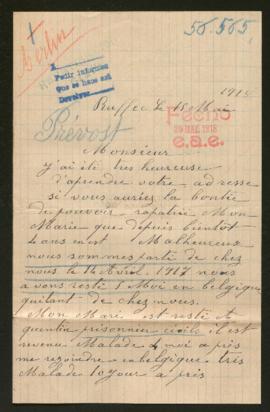 + 56.565
Berlin
Pedir informes
que se hace así
Devolver
1918
Ruffec le 18 Mai
Fecho
MAI. 1918
e.a.e.
Prévost
Monsieur
j'ai été tres heureuse
d'aprendre votre adresse
si vous auriez la bontée
de pouvoir rapatrié Mon
Marie que depuis bientot
4 ans est Malheureux
nous sommes parti de chez
nous le 14 Avril 1917 nous
avons resté 5 Moi en belgique
quitant de chez nous.
Mon Mari est resté St
quentin prisonnier civils il est
revenu Malade 4 moi a près
me rejoindre en belgique très
Malade 10 jour a près